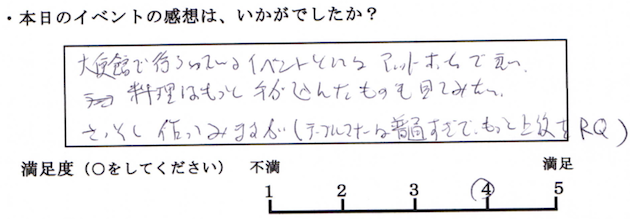 ・本日のイベントの感想は、いかがでしたか？
大使館で行っているイベントという アットホームで良い。
料理はもっと手が込んだものも見てみたい。
さっそく作ってみますが（テーブルマナーは普通すぎで、もっと上級をRQ）
満足度（○をしてください） 不満 満足
1 2 3 4 5